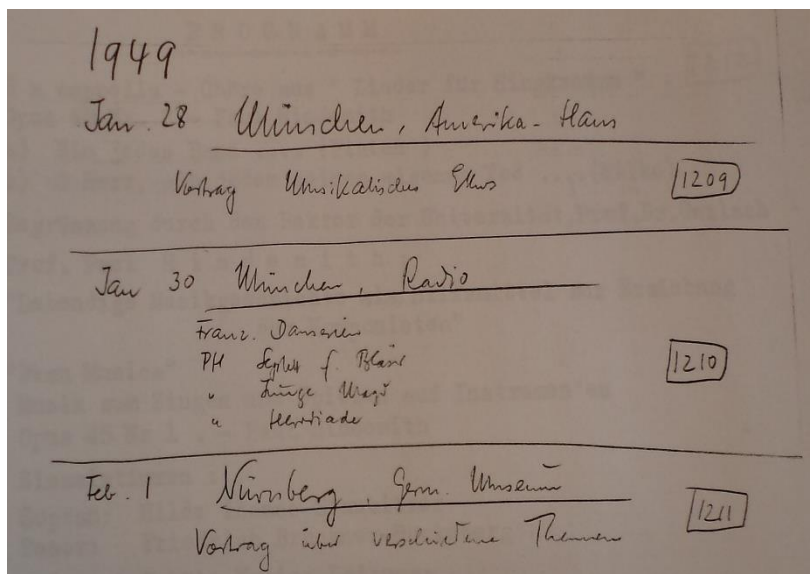 1949
Jan. 28 München, Amerika-Haus
Vortrag Musikalisches Ethos 1209
Jan 30 München, Radio
Franz. Danserien
PH Septett f. Bläser
" Junge Magd
" Herodiade
1210
Feb. 1 Nürnberg, Germ. Museum
Vortrag über verschiedene Themen 1211